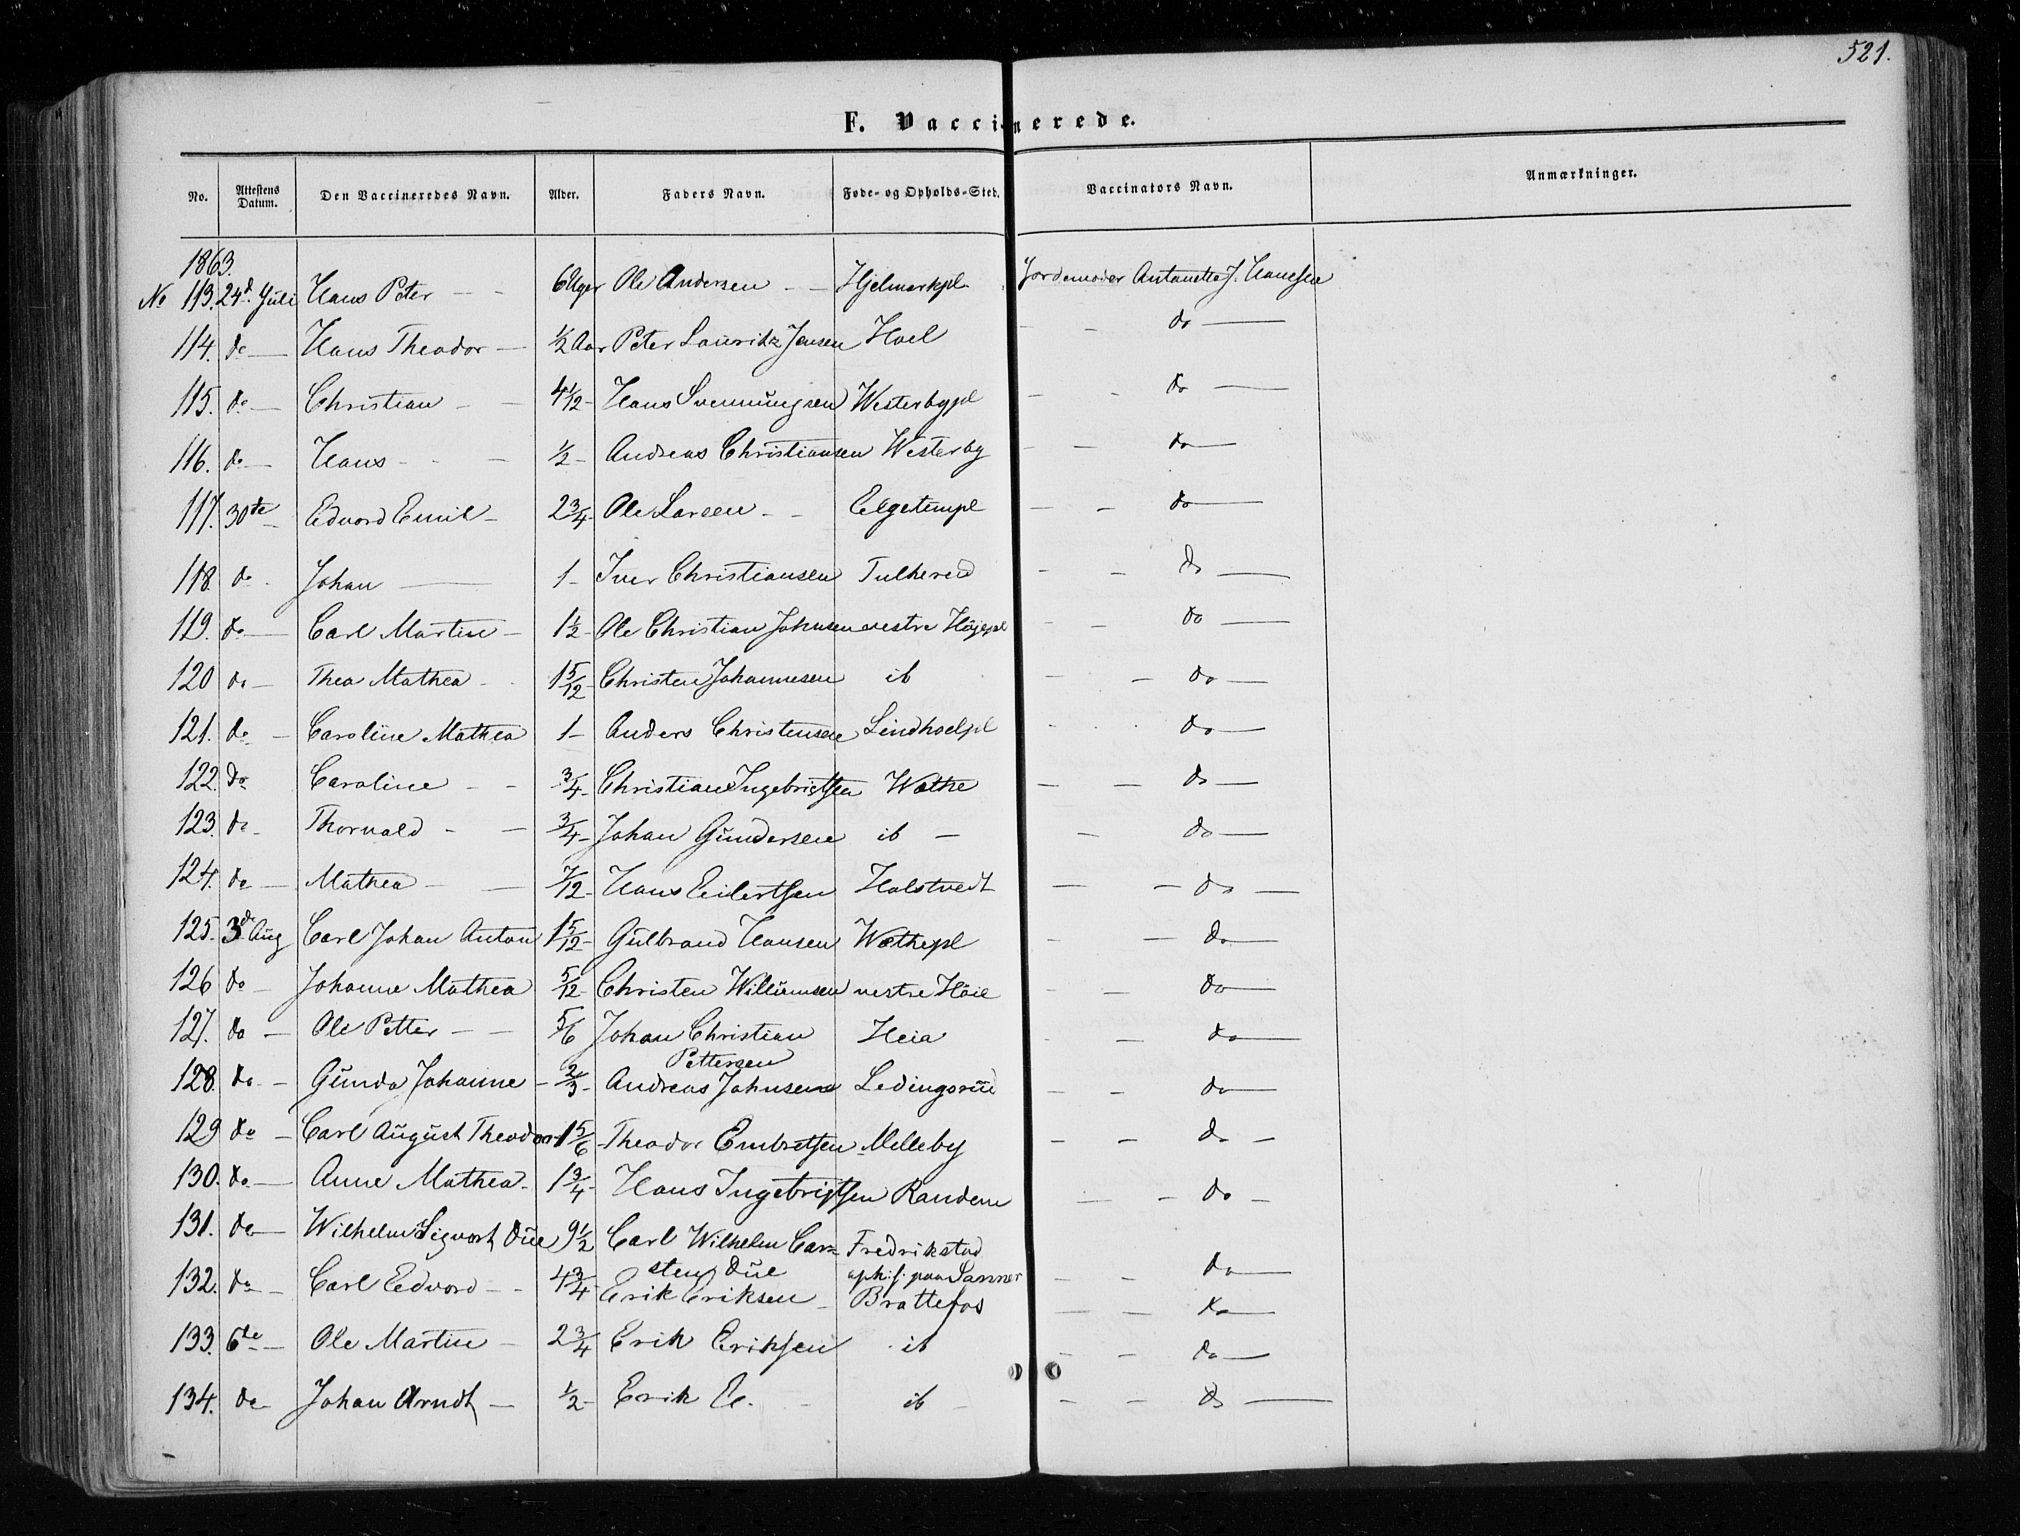 521.
F. Vaccinerede.
No. Attestens Datum. Den Vaccineredes Navn. Alder. Faders Navn. Føde- og Opholds-Sted. Vaccinators Navn. Anmærkninger.
1863.
No 113. 24d. Juli Hans Peter - - 6 Uger Ole Andersen - - Hjelmarkpl Jordemoder Antonette J. Hansen
114. do - Hans Theodor - 1/2 Aar Peter Lauritz Jensen Hoel - - do -
115. do - Christian - - 4 1/12 - Hans Svennungsen Westerbypl - - do -
116. do - Hans - - - 1/2 - Andreas Christiansen Westerby - - do -
117. 30te - Edvard Emil - 2 3/4 - Ole Larsen - - Elgetunpl - - do -
118. do - Johan - 1 - Iver Christiansen Tulherød - - do -
119. do - Carl Martin - 1 1/2 - Ole Christian Johnsen vestre Höjepl - - do -
120 do - Thea Mathea - - 1 5/12 - Christen Johannesen ib - - do -
121. do - Caroline Mathea 1 - Anders Christensen Lindhoelpl - - do -
122. do Caroline - - 3/4 - Christian Ingebrigtsen Wathe - - do -
123. do - Thorvald - - 3/4 - Johan Gundersen ib - - do -
124. do - Mathea - - 7/12 - Hans Eilertsen Holstvedt - - do -
125. 3de Aug Carl Johan Anton 1 5/12 - Gulbrand Hansen Wathepl - - do -
126 do - Johanne Mathea 5/12 - Christen Willumsen vestre Höie - - do -
127. do - Ole Petter - - 5/6 Johan Christian Heia - - do -
Pettersen
128. do - Gunda Johanne - 2/3 - Andreas Johnsen Ledingsrud - - do -
129 do - Carl August Theodor 1 5/6 - Theodor Embretsen Melleby - - do -
130. do - Anne Mathea - 1 3/4 - Hans Ingebrigtsen Randem - - do -
131. do - Wilhelm Sigvart Due 9 1/2 Carl Wilhelm Car= Fredrikstad
sten Due oph: s: paa Sanner - - do -
132. do - Carl Edvard - - 4 3/4 - Erik Eriksen - Brattefos - - do -
133. 6te - Ole Martin - 2 3/4 Erik Eriksen ib - - do -
134. do - Johan Arndt - 1/2 - Erik E. - ib - - - do -